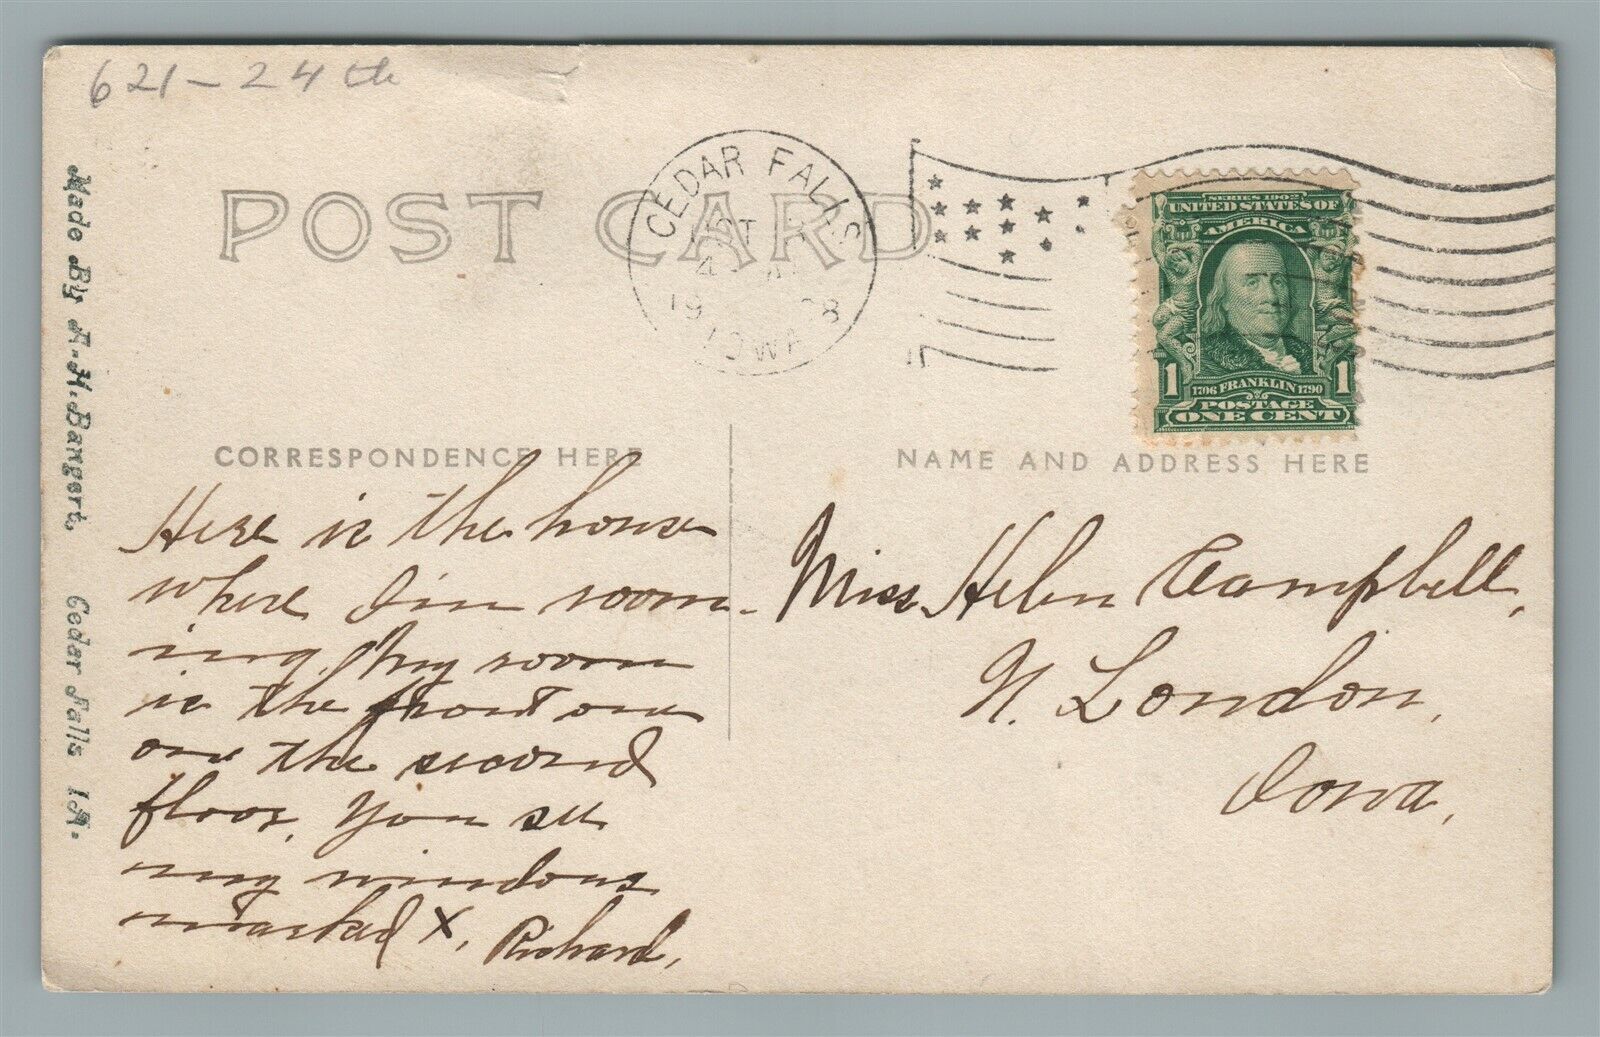 621-24th
POST CARD
CEDAR FALLS
OCT
1908
IOWA
SERIES 1902
UNITED STATES OF
AMERICA
1706 FRANKLIN 1790
1 1
POSTAGE
ONE CENT
Made By R.H.Bangert, Cedar Falls IA.
CORRESPONDENCE HERE
NAME AND ADDRESS HERE
Here is the house
where I'm room-
ing, My room
is the front one
one the second
floor, You see
my windows
marked X, Richard,
Miss Helen Campbell,
N. London,
Iowa,